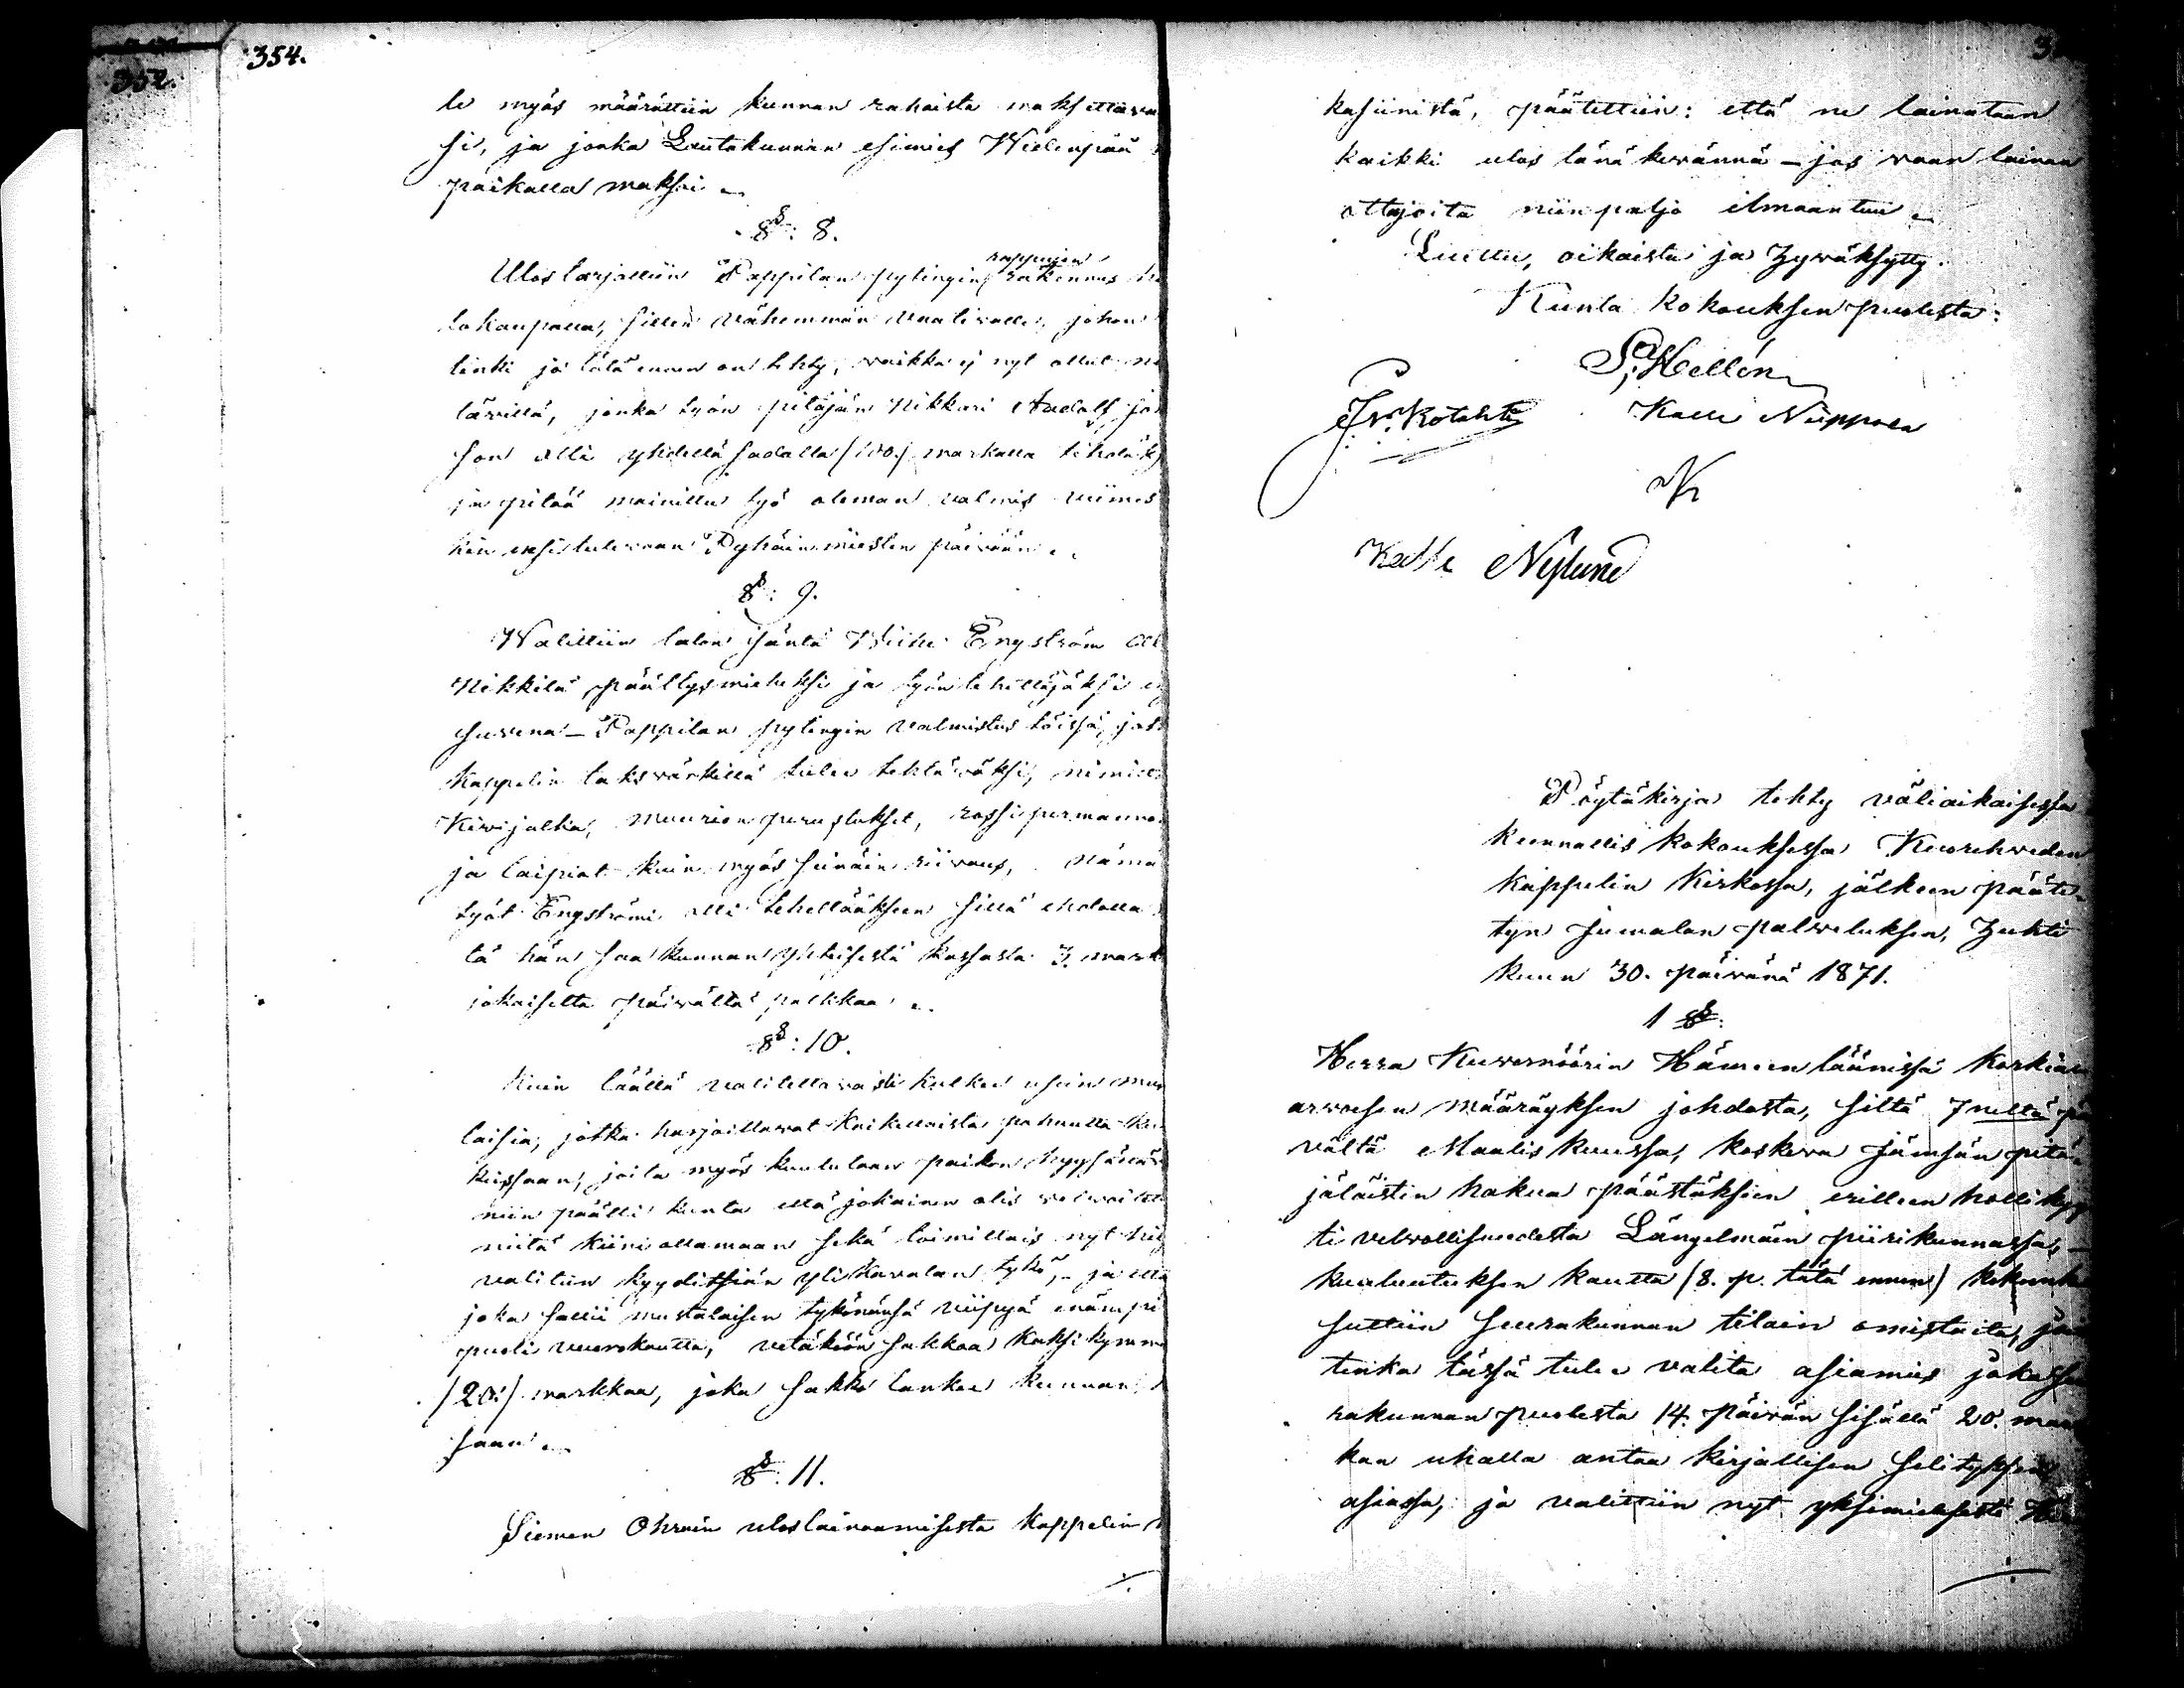 352.
354.
le myös määrättiin kunnan rahoista maksettava
si, ja jonka Lautakunnan esimies Wielenpää
paikalla maksoi
§: 8.
Ulostarjottiin Pappilan pytingin rappujen rakennus hu
tokaupalla, sillen vähemmän vaativalle, johon
tinki jo tätä ennen on tehty, vaikka ej nyt ollut
täwillä, jonka työn pitäjän Nikkari Audolf Jo
son otti yhdellä sadalla /100./ markalla tehdäks
ja pitää mainittu työ oleman valmis viimes
kin ensitulevaan Pyhäinmiesten päivään.
§: 9.
Walittiin talon isäntä Wihi Engström
Nikkilä päällysmieheksi ja työn tehettäjäksi
suvena – Pappilan pytingin valmistus töissä, jot
Kappelin taksvärkillä tulee tehtäväksi, nimitt
Kivijalka, muurien perustukset, rossipermanno
ja laipiot kuin myös seinäin riivaus, Nämä
työt Engströmi otti tehettääkseen sillä ehdolla
tä hän saa kunnan yhteisestä kassasta 3. mark
jokaiselta päivältä palkkaa.
§: 10.
Kuin täällä valitettavasti kulkee usein mus
laisia, jotka harjoittavat kaikellaista pahuutta
kuissaan, joita myös kuulutaan paikon hyysäävä
niin päätti kunta että jokainen olis velvoitettu
niitä kiini ottamaan sekä toimittais nyt
valitun kyyditsiän yli Kavalan tykö, ja että
joka sallii mustalaisen tykönänsä viipyä enämpi
puoli vuorokautta, vetäköön sakkoa kaksikymme
/20:/ markkaa, joka sakko lankee kunnan
saan.
§: 11.
Siemen Ohrain uloslainaamisesta Kappelin
kasiinistä, päätettiin: että ne lainataan
kaikki ulos tänä kevännä – jos vaan lainan
ottajoita niinpaljo ilmaantuu
Luettu, oikaistu ja Hyväksytty.
Kunta kokouksen puolesta:
S. Hellén
Kalle Niippala
Kalle Nylund
Pöytäkirja tehty väliaikaisessa
kunnallis kokouksessa Kuorehveden
Kappelin Kirkossa, jälkeen pääte-
tyn Jumalan palveluksen, Huhti
kuun 30. päivänä 1871.
1 §:
Herra Kuvernöörin Hämeen läänissä korkia
arvoisen määräyksen johdosta, siltä 7neltä pä
vältä Maaliskuussa, koskeva Jämsän pitä-
jäläistin hakua päästäksien erilleen hollikyy
ti velvollisuudesta Längelmäen piirikunnassa,
kuulutuksen kautta /8. p. tätä ennen/ kokoonk
suttiin seurakunnan tilain omistaita,
tenka tässä tulee valita asiamies
rakunnan puolesta 14. päivän sisällä 20. mar
kan uhalla antaa kirjallisen selityksen
asiassa, ja valittiin nyt yksimielisesti